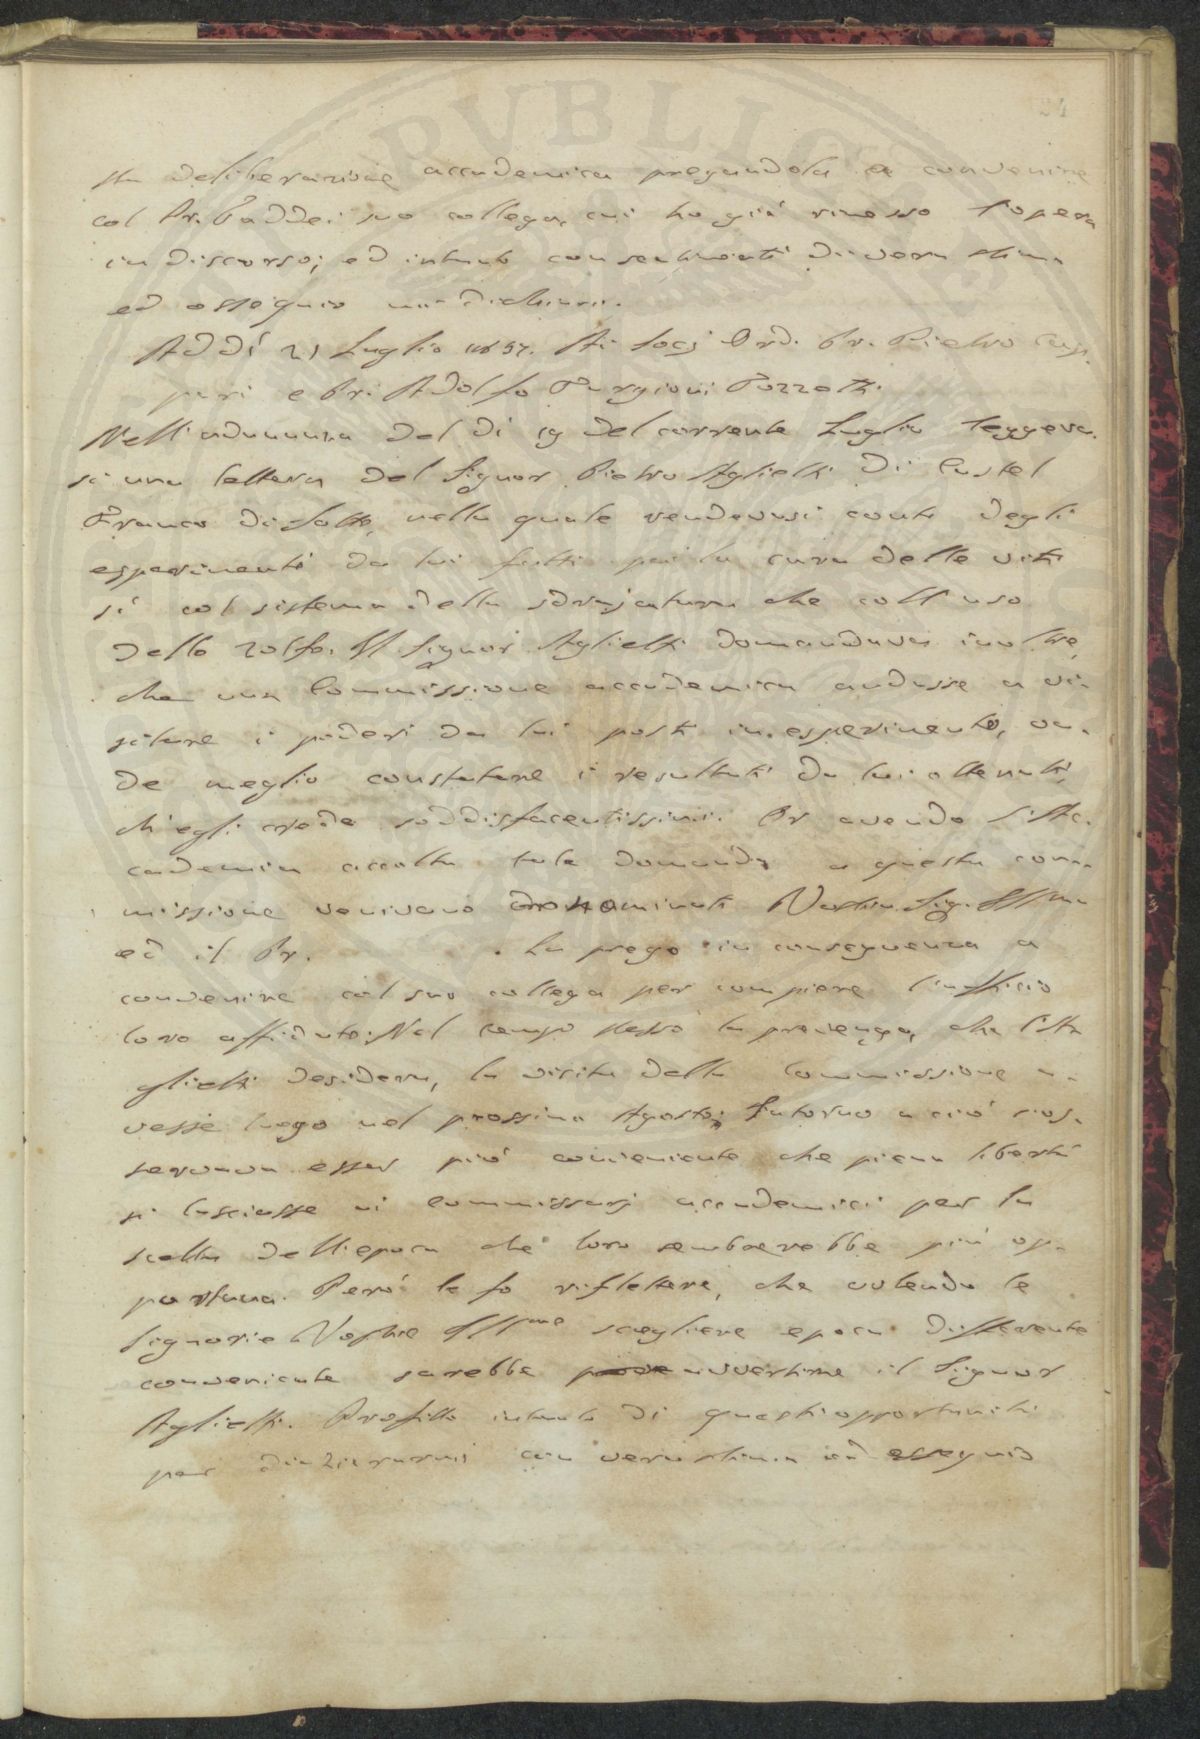 sta deliberazione accademica pregandola a convenire
col Pr. Taddei suo collega, cui ho già rimesso l'opera
in discorso; ed intanto con sentimenti di vera stima
ed ossequio mi dichiaro.
Addì 21 Luglio 1857. Ai Socj Ord. Pr. Pietro Cup-
pari e Pr. Adolfo Targioni Tozzetti.
Nell'adunanza del dì 19 del corrente Luglio leggeva-
si una lettera del Signor Pietro Aglietti di Castel
Franco di Sotto, nella quale rendevasi conto degli
esperimenti da lui fatti per la cura delle viti
sì col sistema della sdrajatura che coll'uso
dello zolfo. Il Signor Aglietti domandava inoltre,
che una Commissione accademica andasse a vi-
sitare i poderi da lui posti in esperimento, on-
de meglio constatare i resultati da lui ottenuti,
ch'egli crede soddisfacentissimi. Or avendo l'Ac-
cademia accolta tale domanda a questa com-
missione venivano nominati Vostra Sig. Illma
ed il Pr. . La prego in conseguenza a
convenire col suo collega per compiere l'ufficio
loro affidato. Nel tempo stesso la prevengo, che l'A-
glietti desidera, la visita della Commissione a-
vesse luogo nel prossimo Agosto; Intorno a ciò si os-
servava esser più conveniente che piena libertà
si lasciasse ai commissarj accademici per la
scelta dell'epoca che loro sembrerebbe più op-
portuna. Però le fo riflettere, che volendo le
Signorie Vostre Illme scegliere epoca differente
conveniente sarebbe avvertirne il Signor
Aglietti. Profitto intanto di questa opportunità
per dichiararmi con vera stima ed ossequio